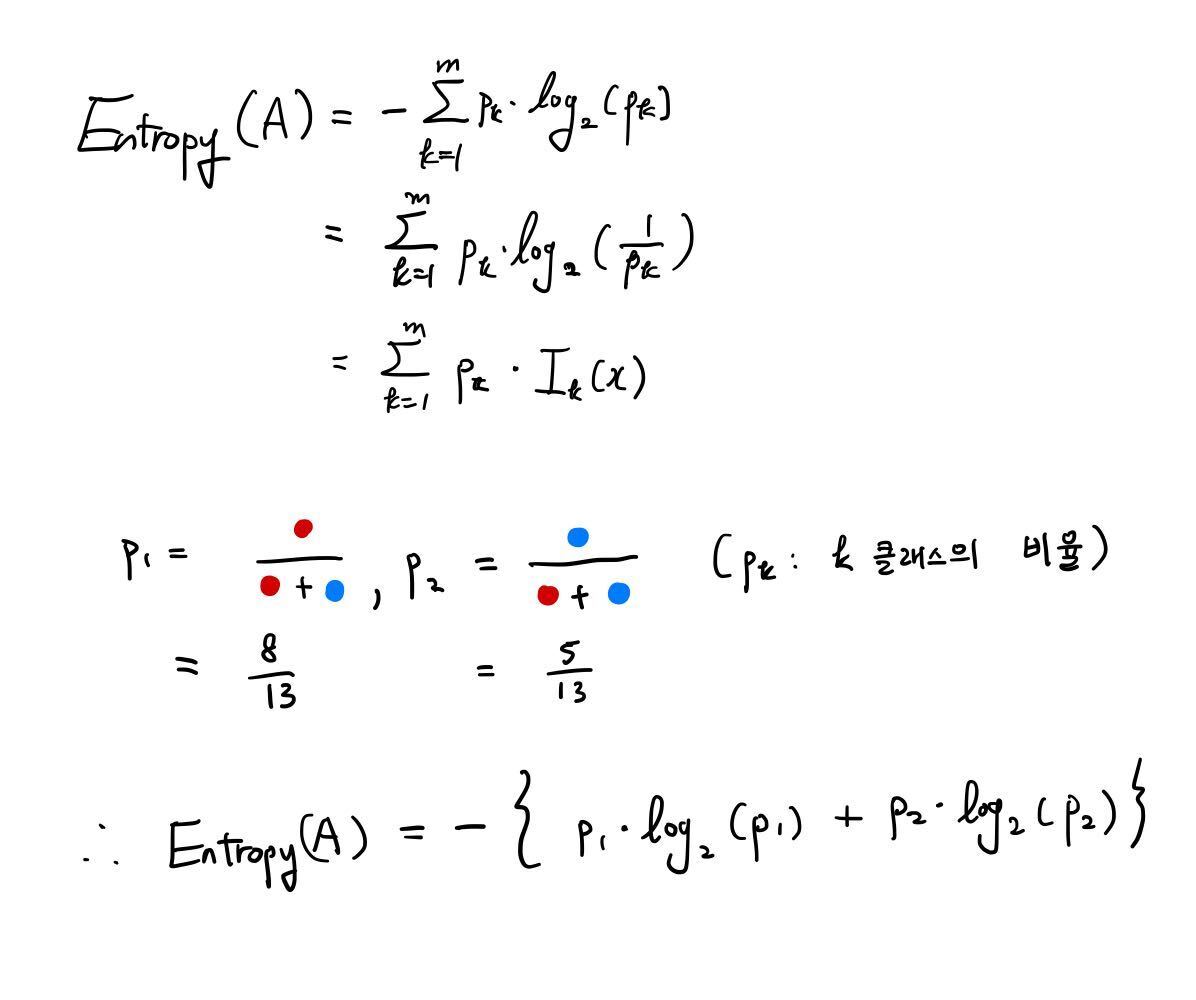 Entropy(A) = - ∑_{k=1}^{m} p_k · log_2(p_k)
= ∑_{k=1}^{m} p_k · log_2(1/p_k)
= ∑_{k=1}^{m} p_k · I_k(x)
p_1 = 🔴/(🔴 + 🔵) , p_2 = 🔵/(🔴 + 🔵) (p_k : k 클래스의 비율)
= 8/13 = 5/13
∴ Entropy(A) = - { p_1 · log_2(p_1) + p_2 · log_2(p_2) }